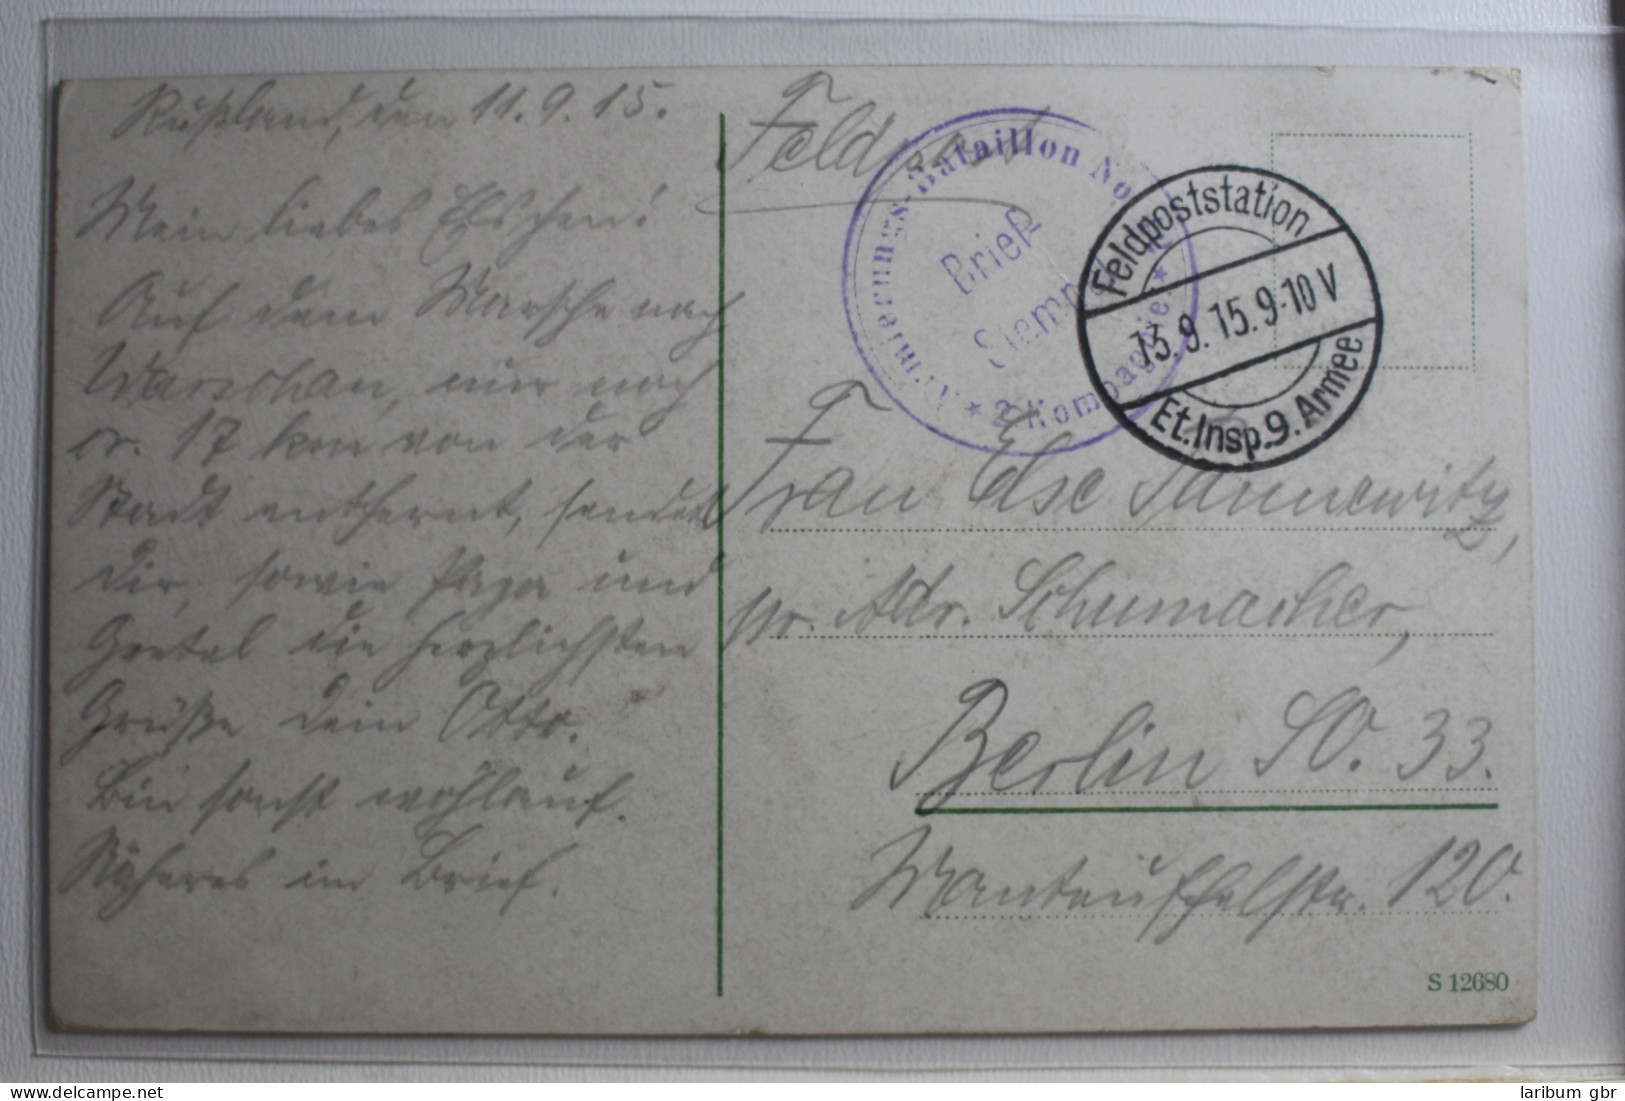 Rußland, den 11.9.15.
Mein liebes Elschen!
Auf dem Marsche nach
Warschau, nur noch
ca. 17 km von der
Stadt entfernt, sendet
Dir, sowie Papa und
Gretel die herzlichsten
Grüße Dein Otto.
Bin sonst wohlauf.
Näheres im Brief.
Feldpost
Armierungs-Bataillon No
Brief
Stempel
* 2. Kompagnie. *
Feldpoststation
13.9.15.9-10 V
Et.Insp.9.Armee
Frau Else Tannewitz,
pr. Adr. Schumacher,
Berlin SO. 33.
Manteuffelstr. 120.
S 12680
laribum gbr
www.delcampe.net